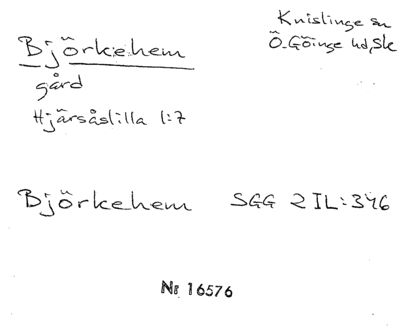 Björkehem
gård
Hjärsåslilla 1:7
Knislinge sn
Ö-Göinge hd, Sk
Björkehem SGG 2 IL:346
Nr 16576